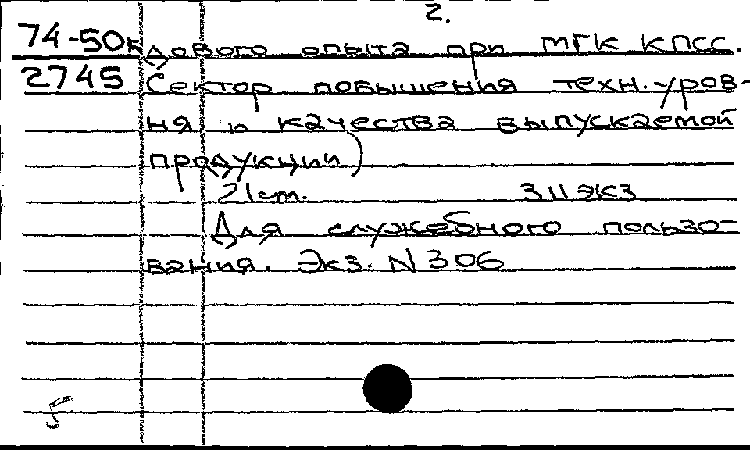 2.
74-50к дового опыта при МГК КПСС.
2745 Сектор повышения техн. уров-
ня и качества выпускаемой
продукции)
21 ст. 311 экз
Для служебного пользо-
вания. Экз. N 306
5